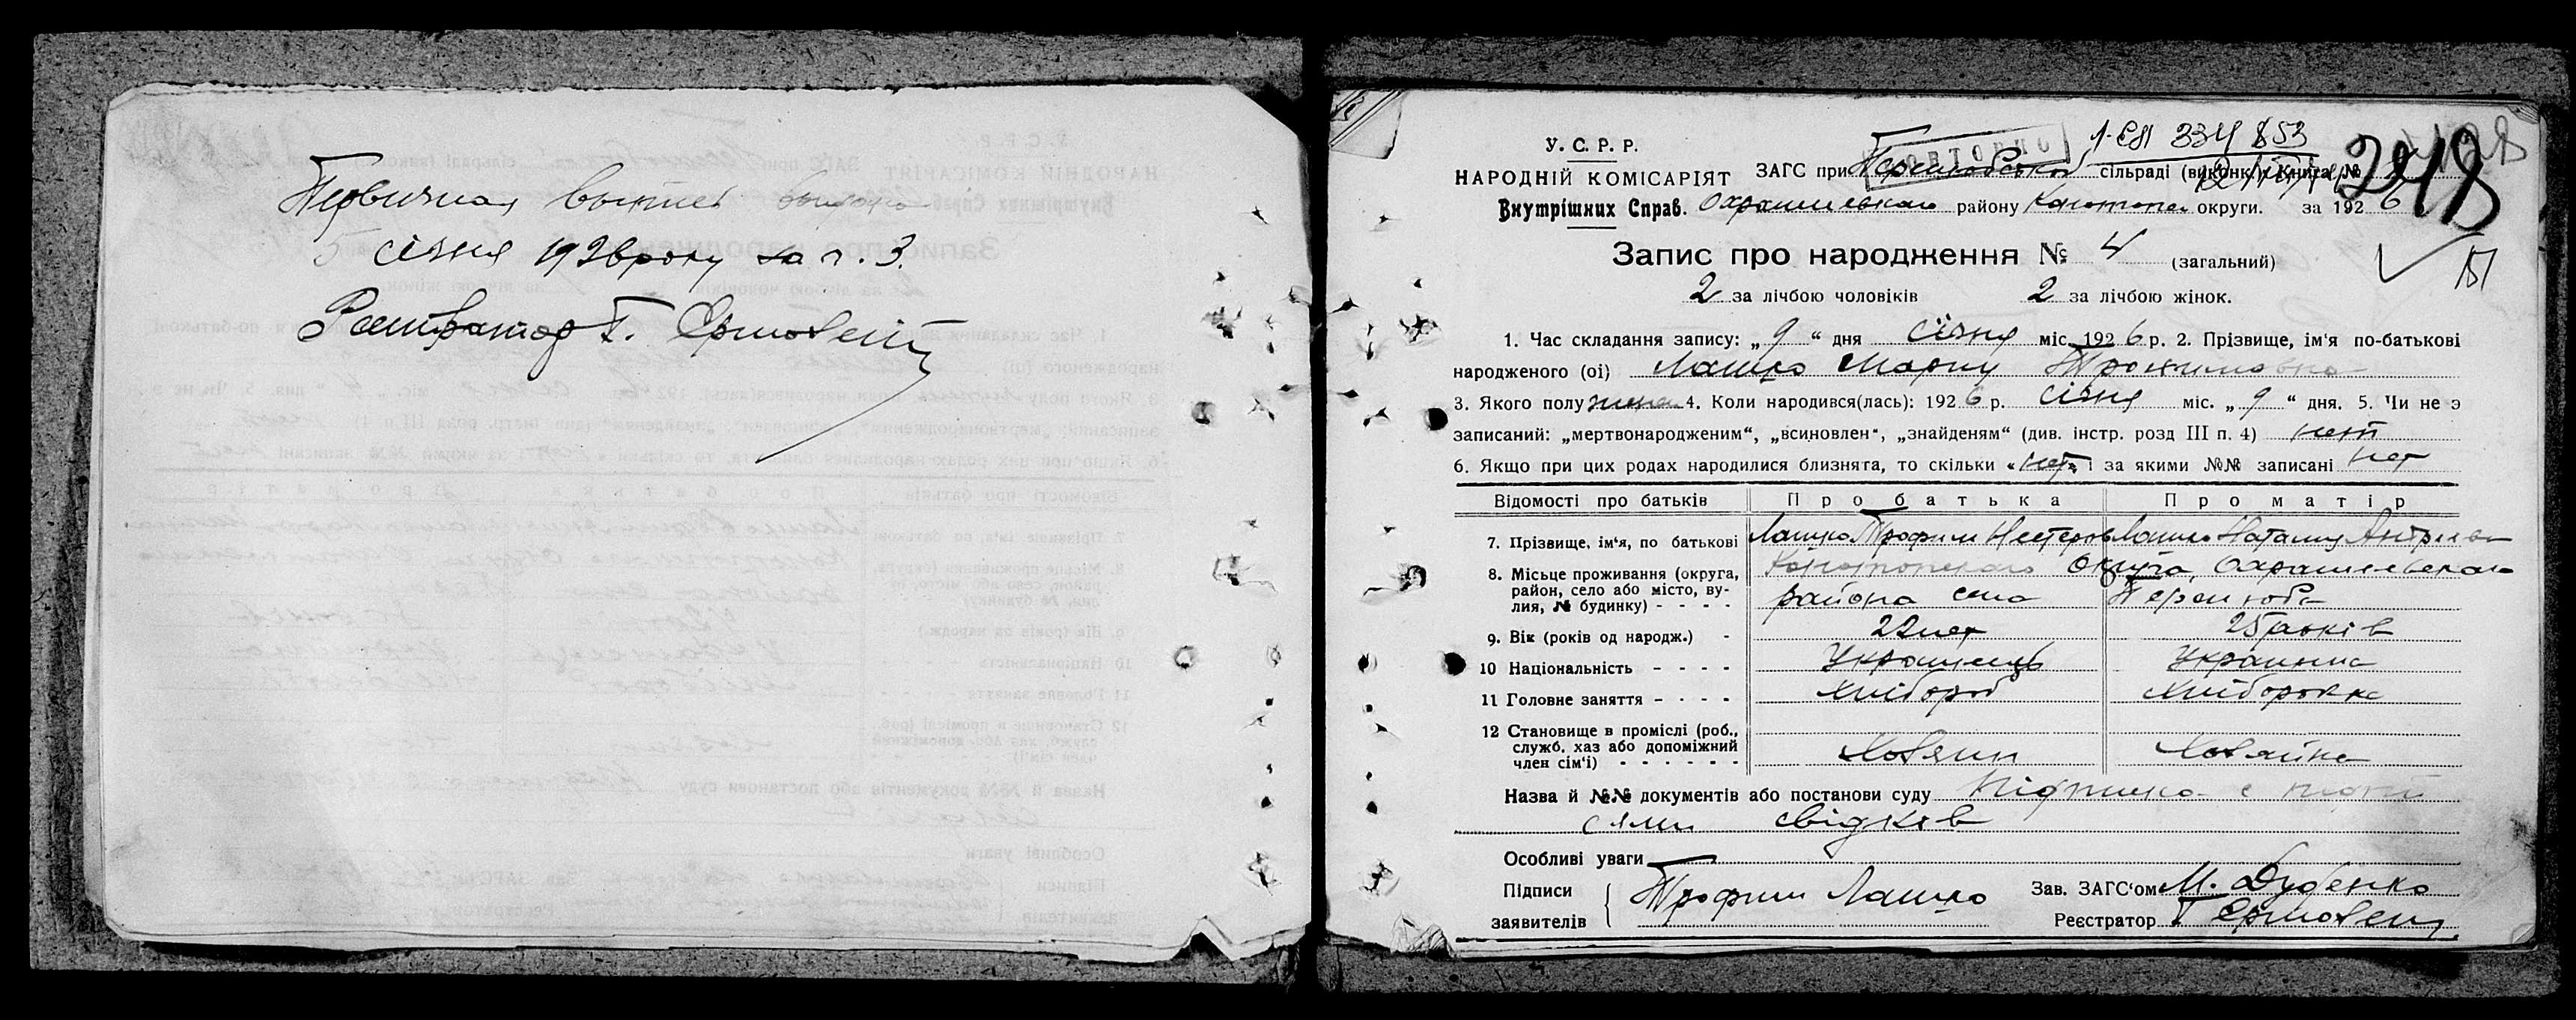 Первичная выпись выдана
5 січня 1926 року за ч. 3.
Реєстратор Г.
1-ЕП 334853
ПОВТОРНО
У. С. Р. Р.
НАРОДНІЙ КОМІСАРІЯТ
Внутрішних Справ.
ЗАГС при сільраді (виконк.) Книга №
району Конотоп округи. за 1926
248
151
Запис про народження № 4 (загальний)
2 за лічбою чоловіків 2 за лічбою жінок.
1. Час складання запису: „ 9 “ дня січня міс. 1926 р. 2. Прізвище, ім'я по-батькові
народженого (ої) Лашко Марии Трохимовна
3. Якого полу 4. Коли народився(лась): 1926 р. січня міс. „ 9 “ дня. 5. Чи не э
записаний: „мертвонародженим“, „всиновлен“, „знайденям“ (див. інстр. розд III п. 4) нет
6. Якщо при цих родах народилися близнята, то скільки „нет“ і за якими №№ записані нет
Відомості про батьків Про батька Про матір
7. Прізвище, ім'я, по батькові Лашко Трофим Нестеров Лашко Наталия Андриев
8. Місьце проживання (округа, Конотопского Округа,
район, село або місто, ву- района села
лия, № будинку) - - - -
9. Вік (років од народж.) - 22 лет 25 років
10 Національність - - - - Украинець Украинка
11 Головне заняття - - - - Хлібороб Хліборобка
12 Становище в проміслі (роб.,
служб. хаз або допоміжний
член сім'ї) - - - - - - Хозяин Хозяйка
Назва й №№ документів або постанови суду Підписка
сями свідків
Особливі уваги
Підписи
заявителів Трофим Лашко
Зав. ЗАГС'ом М. Дубенко
Реєстратор Г